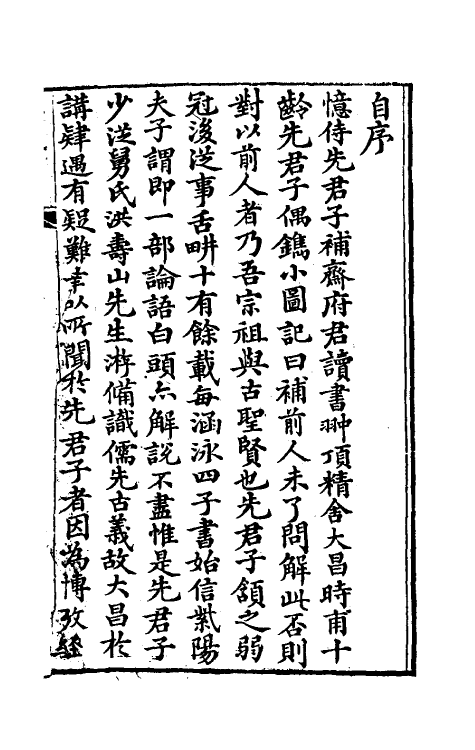 自序
憶侍先君子補齋府君讀書翀頂精舍大昌時甫十
齡先君子偶鐫小圖記曰補前人未了問解此否則
對以前人者乃吾宗祖與古聖賢也先君子頷之弱
冠後从事舌畊十有餘載每涵泳四子書始信紫陽
夫子謂即一部論語白頭亦解說不盡惟是先君子
少从舅氏洪壽山先生游備識儒先古義故大昌於
講肄遇有疑難幸以所聞於先君子者因為博攷經